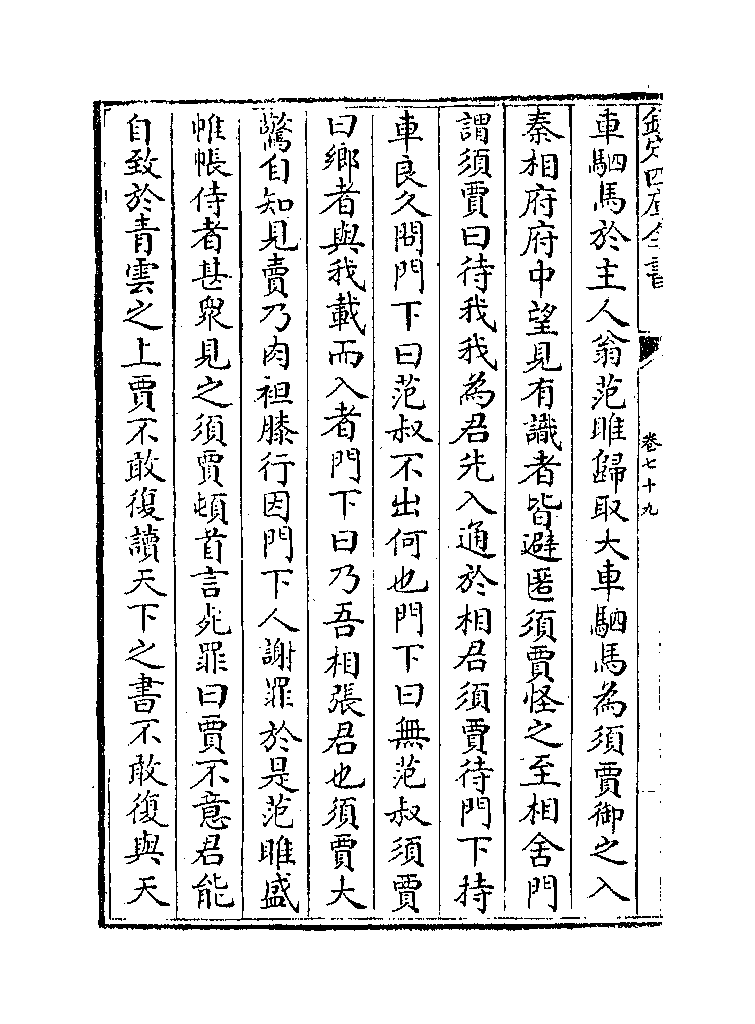 欽定四庫全書
卷七十九
車駟馬於主人翁范雎歸取大車駟馬為須賈御之入
秦相府府中望見有識者皆避匿須賈怪之至相舍門
謂須賈曰待我我為君先入通於相君須賈待門下持
車良久問門下曰范叔不出何也門下曰無范叔須賈
曰鄉者與我載而入者門下曰乃吾相張君也須賈大
驚自知見賣乃肉袒膝行因門下人謝罪於是范雎盛
帷帳侍者甚衆見之須賈頓首言死罪曰賈不意君能
自致於青雲之上賈不敢復讀天下之書不敢復與天